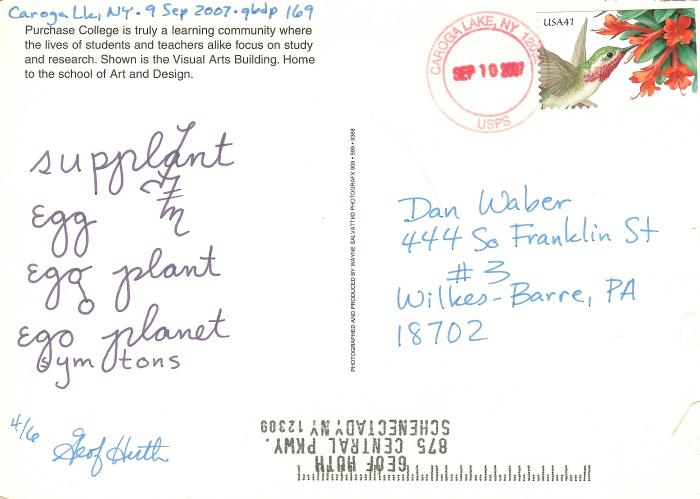 Caroga Lk, NY • 9 Sep 2007 • qbdp 169
Purchase College is truly a learning community where
the lives of students and teachers alike focus on study
and research. Shown is the Visual Arts Building. Home
to the school of Art and Design.
CAROGA LAKE, NY
SEP 10 2007
USPS
USA41
supplant
egg
egg plant
ego planet
symptons
4/6
Geof Huth
PHOTOGRAPHED AND PRODUCED BY WAYNE SALVATTI/ID PHOTOGRAFX
Dan Waber
444 So Franklin St
#3
Wilkes-Barre, PA
18702
GEOF HUTH
875 CENTRAL PKWY.
SCHENECTADY NY 12309